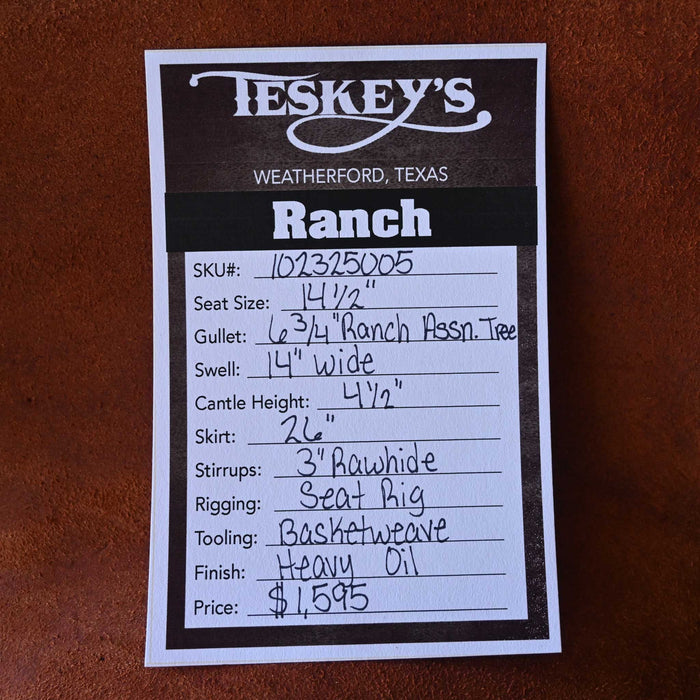 TESKEY'S
WEATHERFORD, TEXAS
Ranch
SKU#: 102325005
Seat Size: 14 1/2"
Gullet: 6 3/4" Ranch Assn. Tree
Swell: 14" wide
Cantle Height: 4 1/2"
Skirt: 26"
Stirrups: 3" Rawhide
Rigging: Seat Rig
Tooling: Basketweave
Finish: Heavy Oil
Price: $1,595